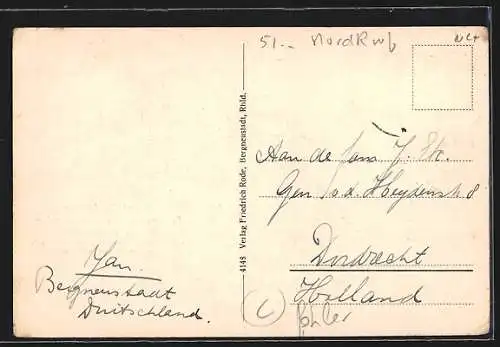 51.-
NordRwf
4148 Verlag Friedrich Rode, Bergneustadt, Rhld.
Aan de fam J.
Gen v.d. Heydenstr 8
Dordrecht
Holland
Jan.
Bergneustadt
Duitschland.